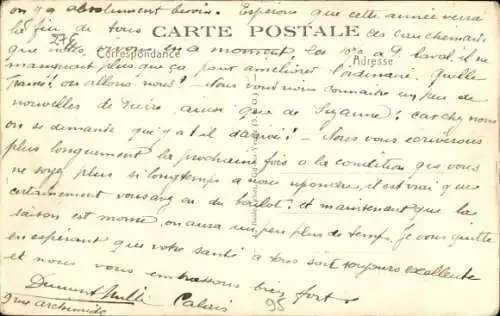 on y a absolument besoin. Espérons que cette année verra
la fin de tous ces cauchemars
CARTE POSTALE
Correspondance
Adresse
que nous en a moment les Laval, il ne
manquait plus que ça pour améliorer l'ordinaire. Quelle
où allons nous! - Nous vous nous connaitre un peu de
nouvelles de ainsi que de Suzanne! car chez nous
on se demande qu'y a t il d'arrivé! - Nous vous écrirons
plus longuement la prochaine fois à la condition que vous
ne soyez plus si longtemps à nous répondre, il est vrai que
certainement vous avez eu du boulot! et maintenant que la
saison est morte, on aura un peu plus de temps. Je vous quitte
en espérant que votre santé à tous soit toujours excellente
et nous vous embrassons bien fort
9 rue archimède Calais
95